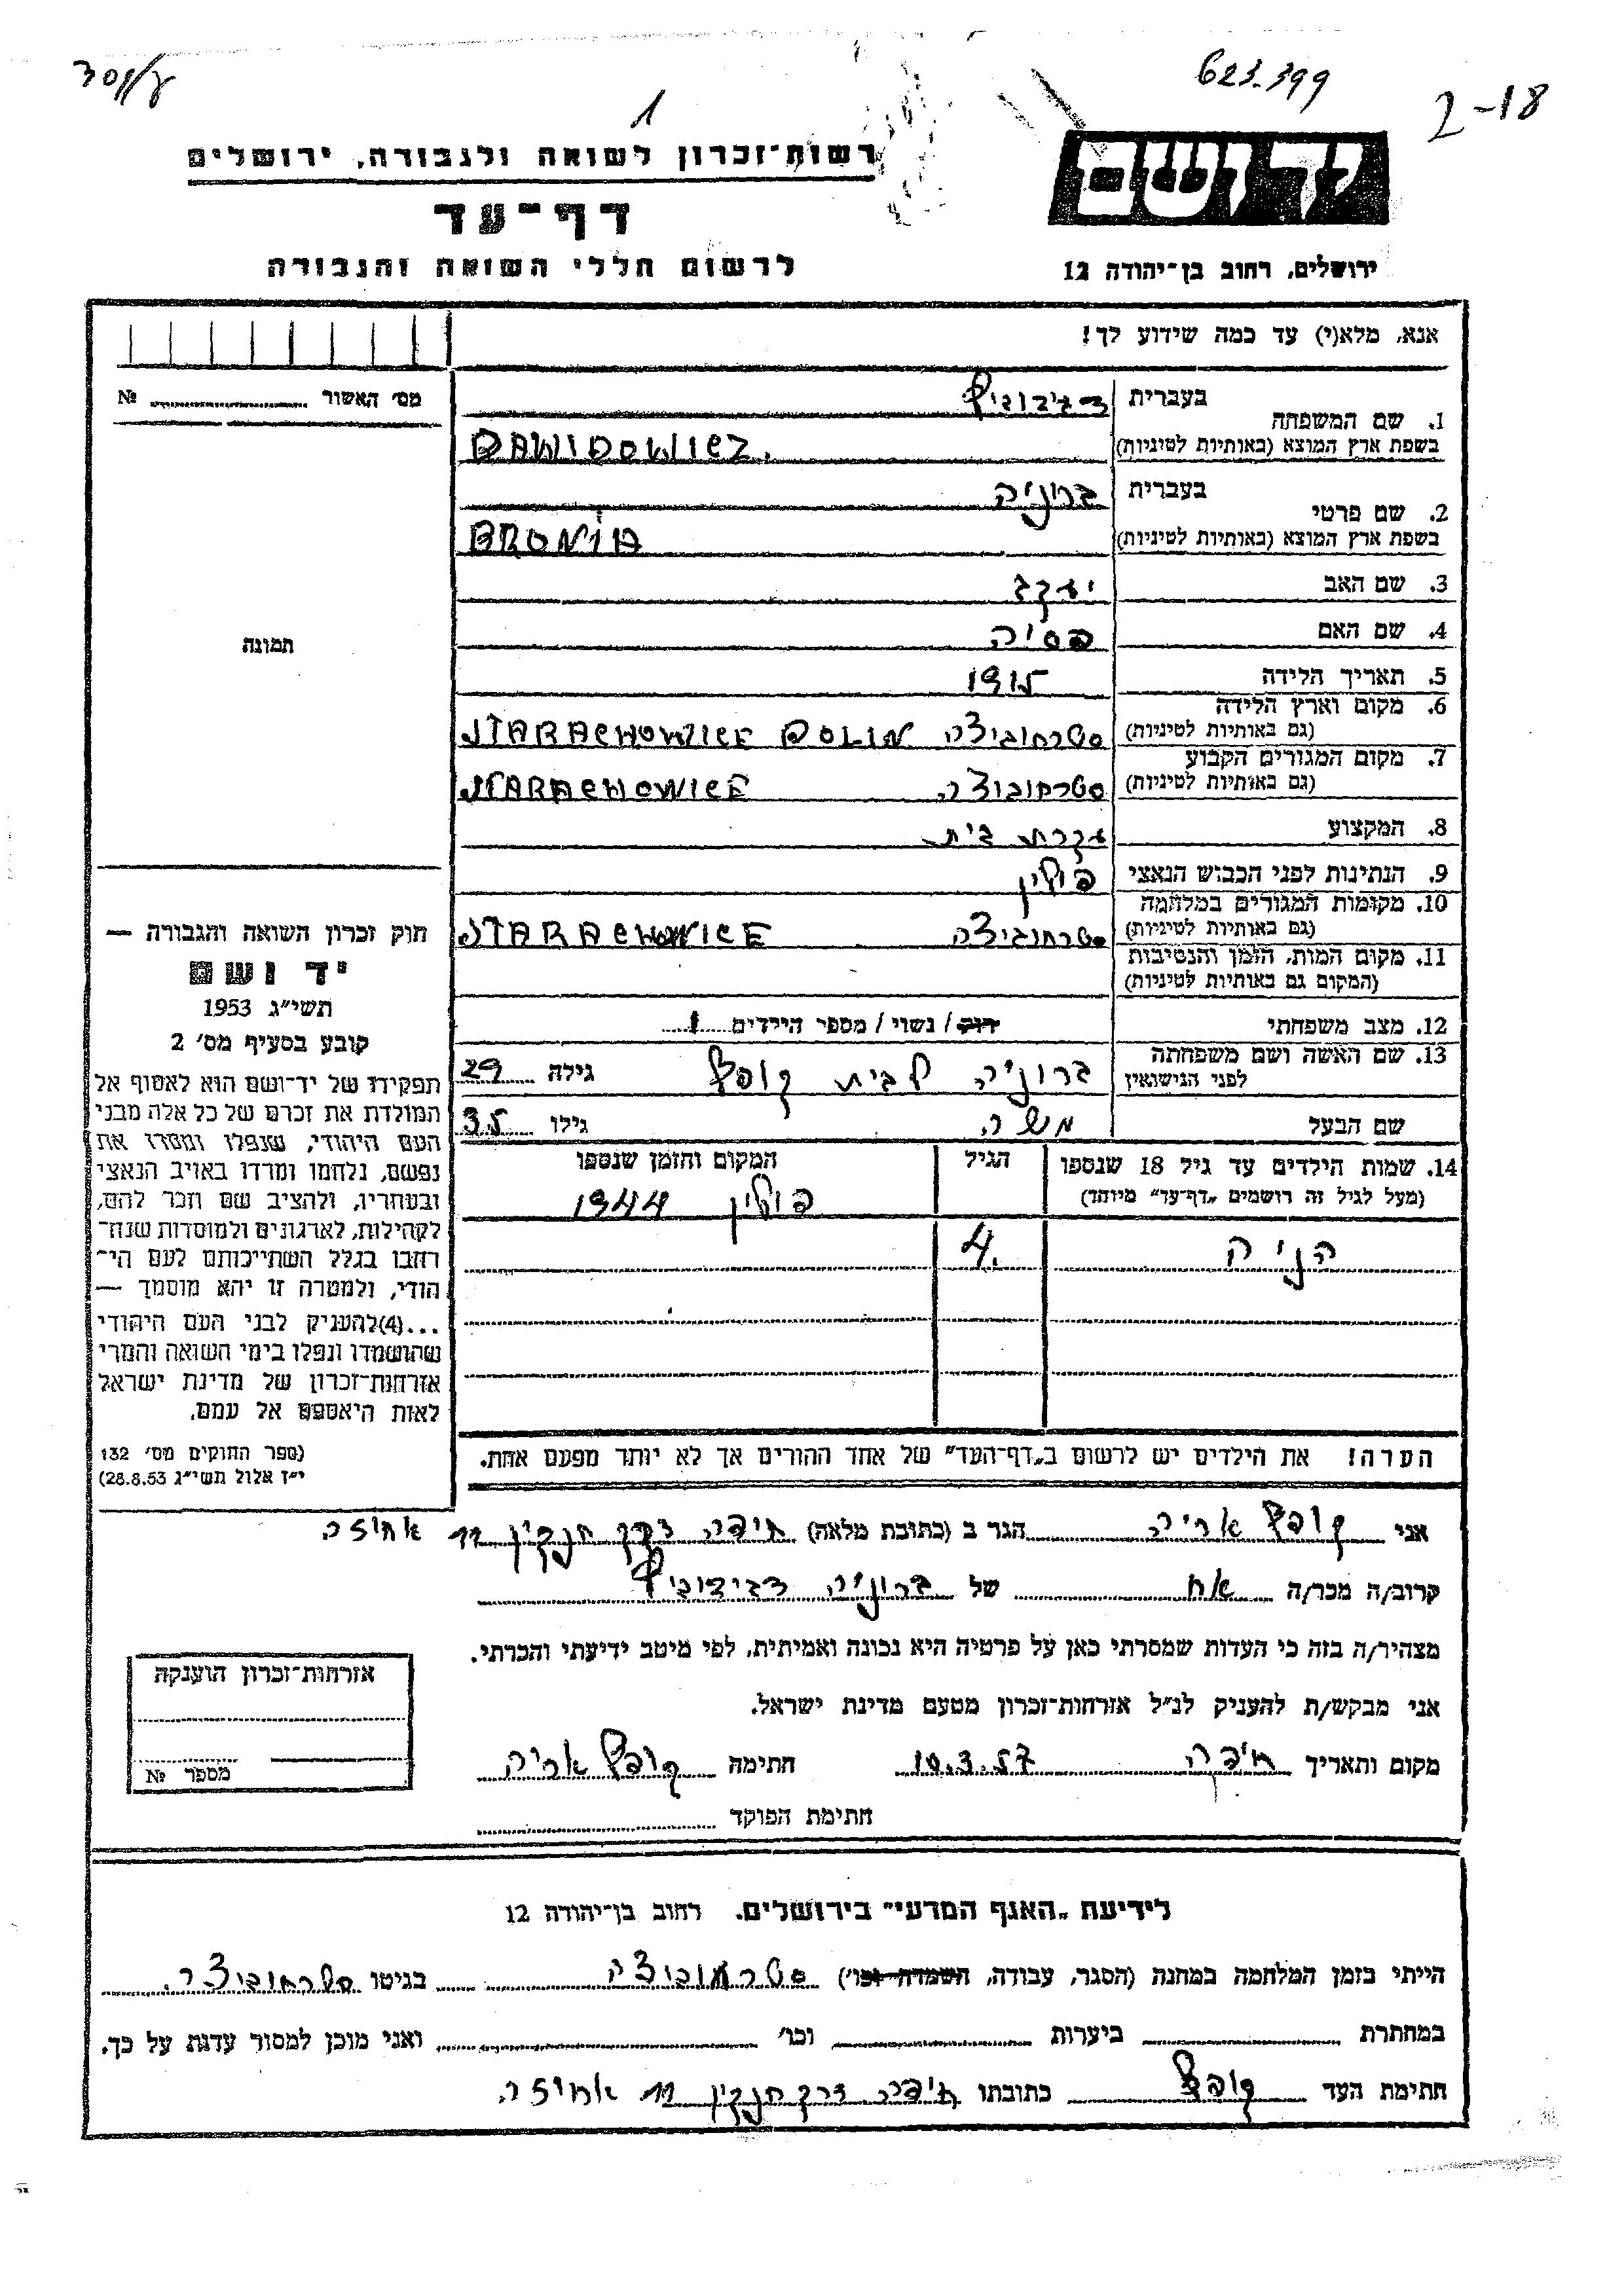 623.399
2-18
1
יד ושם
ירושלים, רחוב בן־יהודה 12
רשות־זכרון לשואה ולגבורה, ירושלים
דף־עד
לרשום חללי השואה והגבורה
אנא, מלא(י) עד כמה שידוע לך!
מס׳ האשור № 
1. שם המשפחה בעברית
בשפת ארץ המוצא (באותיות לטיניות) DAWIDOWICZ.
2. שם פרטי בעברית ברוניה
בשפת ארץ המוצא (באותיות לטיניות) BRONIA
3. שם האב יעקב
4. שם האם פסיה
5. תאריך הלידה 1915
6. מקום וארץ הלידה (גם באותיות לטיניות) סטרחוביצה STARACHOWICE POLIN
7. מקום המגורים הקבוע (גם באותיות לטיניות) סטרחוביצה STARACHOWICE
8. המקצוע עקרת בית
9. הנתינות לפני הכבוש הנאצי פולין
10. מקומות המגורים במלחמה (גם באותיות לטיניות) סטרחוביצה STARACHOWICE
11. מקום המות, הזמן והנסיבות (המקום גם באותיות לטיניות)
12. מצב משפחתי רוק/ נשוי/ מספר הילדים 1
13. שם האשה ושם משפחתה לפני הנישואין ברוניה לבית קופץ גילה 29
שם הבעל משה גילו 35
14. שמות הילדים עד גיל 18 שנספו (מעל לגיל זה רושמים „דף־עד״ מיוחד) הגיל המקום והזמן שנספו
פולין 1944
הניה 4.
הערה! את הילדים יש לרשום ב„דף־העד״ של אחד ההורים אך לא יותר מפעם אחת.
תמונה
חוק זכרון השואה והגבורה —
יד ושם
תשי״ג 1953
קובע בסעיף מס׳ 2
תפקידו של יד־ושם הוא לאסוף אל
המולדת את זכרם של כל אלה מבני
העם היהודי, שנפלו ומסרו את
נפשם, נלחמו ומרדו באויב הנאצי
ובעוזריו, ולהציב שם וזכר להם,
לקהילות, לארגונים ולמוסדות שנח־
רחבו בגלל השתייכותם לעם הי־
הודי, ולמטרה זו יהא מוסמך —
...(4)להעניק לבני העם היהודי
שהושמדו ונפלו בימי השואה והמרי
אזרחות־זכרון של מדינת ישראל
לאות היאספם אל עמם.
(ספר החוקים מס׳ 132
י״ז אלול תשי״ג 28.8.53)
אני קופץ אריה הגר ב (כתובת מלאה) חיפה דרך חנקין 11 אחוזה
קרוב/ה מכר/ה אח של ברוניה דבידוביץ
מצהיר/ה בזה כי העדות שמסרתי כאן על פרטיה היא נכונה ואמיתית, לפי מיטב ידיעתי והכרתי.
אני מבקש/ת להעניק לנ״ל אזרחות־זכרון מטעם מדינת ישראל.
מקום ותאריך חיפה 10.3.57 חתימה קופץ אריה
חתימת הפוקד
אזרחות־זכרון הוענקה
מספר №
לידיעת „האגף המדעי״ בירושלים. רחוב בן־יהודה 12
הייתי בזמן המלחמה במחנה (הסגר, עבודה, השמדה וכו׳) סטרחוביצה בגיטו סטרחוביצה.
במחתרת ביערות וכו׳ ואני מוכן למסור עדות על כך.
חתימת העד קופץ כתובתו חיפה דרך חנקין 11 אחוזה